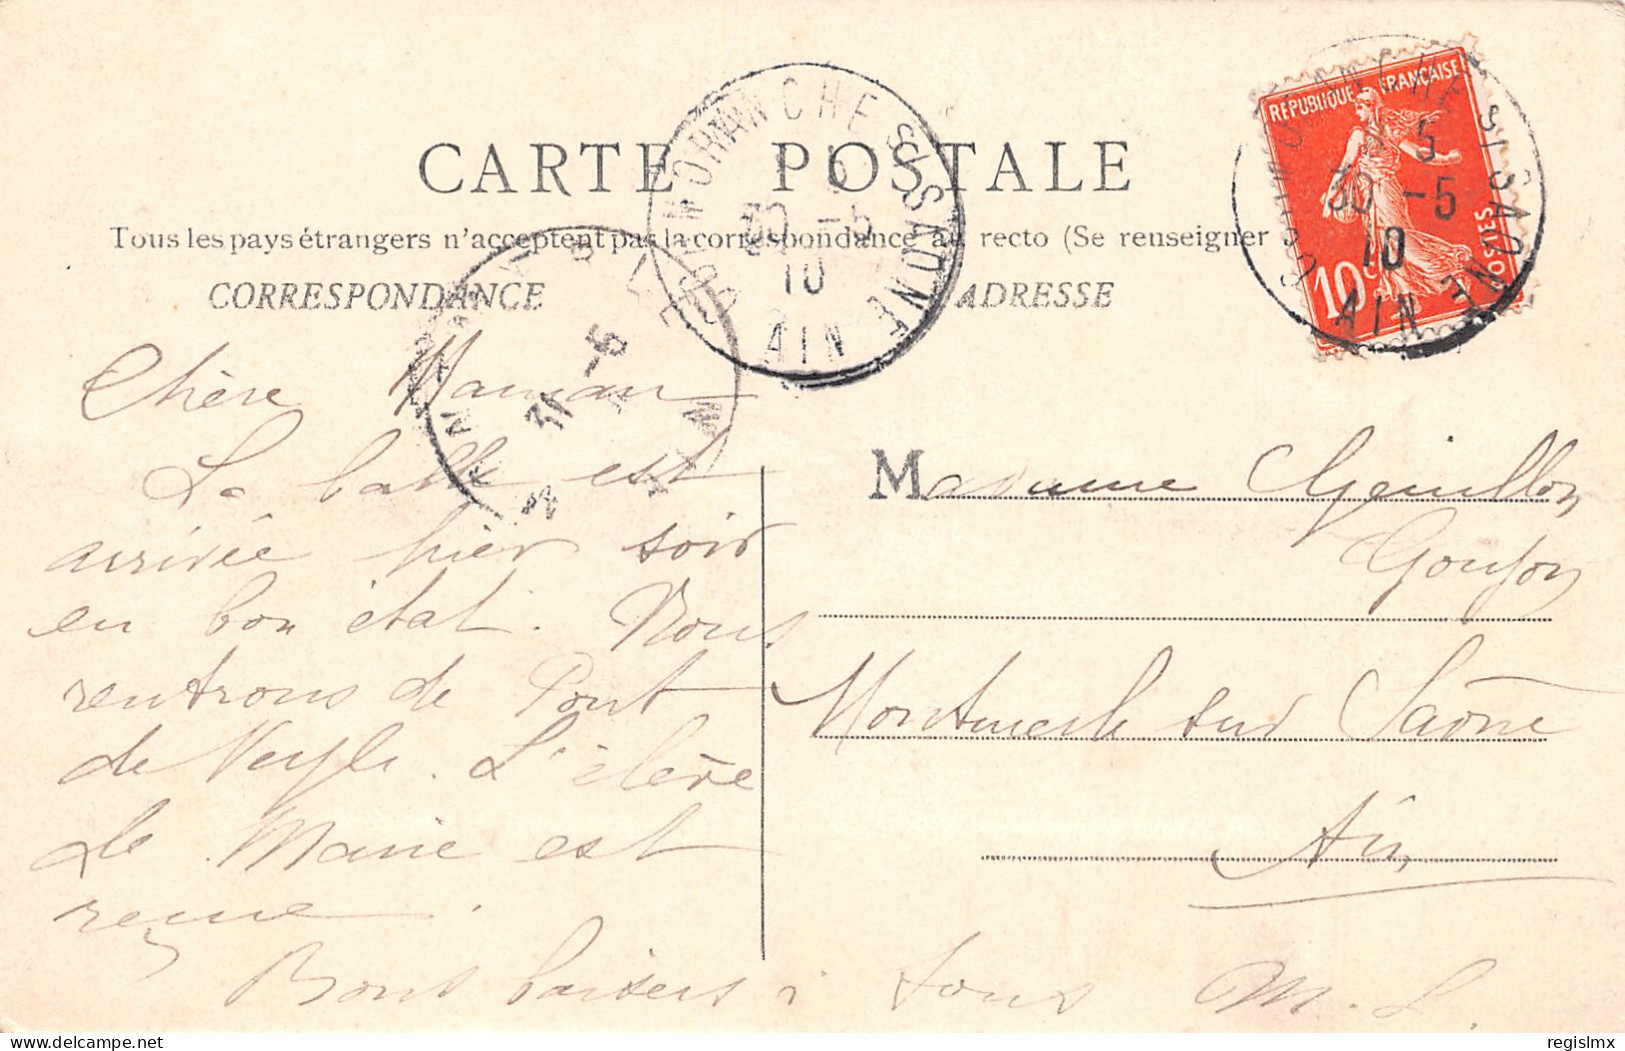 CARTE POSTALE
Tous les pays étrangers n'acceptent pas la correspondance au recto (Se renseigner
CORRESPONDANCE
ADRESSE
REPUBLIQUE FRANÇAISE
10c
POSTES
CORMORANCHE S/ SAONE
5
30 -5
10
AIN
CORMORANCHE S/ SAONE
30 -5
10
AIN
31 -5
Chère Maman
La balle est
arrivée hier soir
en bon état. Nous
rentrons de Pont
de Veyle. L'élève
de Marie est
reçue.
Bons baisers à tous M. L.
Madame
Goujon
Montmerle sur Saône
Ain
regislmx